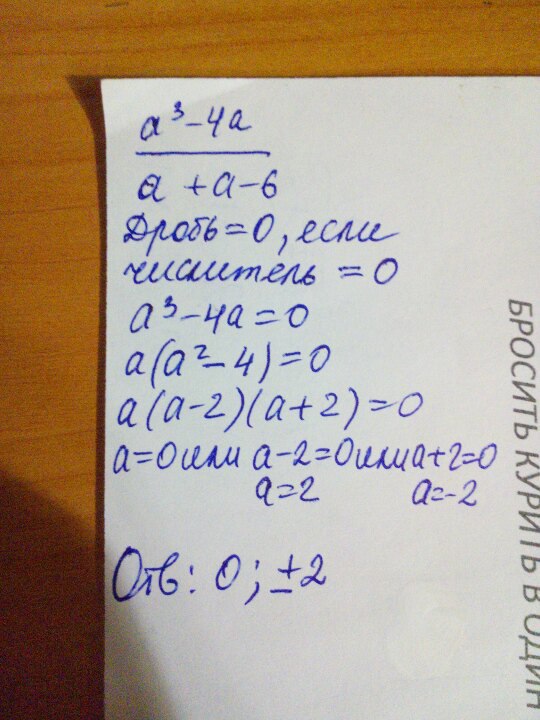 a³-4a
a + a-6
Дробь=0, если
числитель = 0
a³-4a=0
a(a²-4)=0
a(a-2)(a+2)=0
a=0 или a-2=0 или a+2=0
a=2 a=-2
Отв: 0; ±2
БРОСИТЬ КУРИТЬ В ОДИН